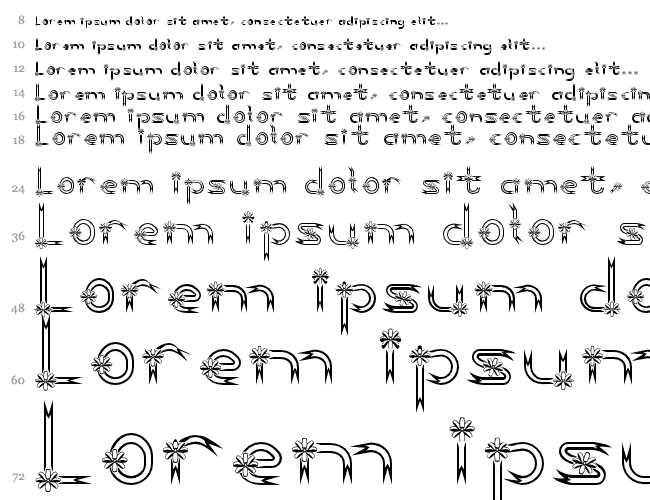 8 Lorem ipsum dolor sit amet, consectetuer adipiscing elit...
10 Lorem ipsum dolor sit amet, consectetuer adipiscing elit...
12 Lorem ipsum dolor sit amet, consectetuer adipiscing elit...
14 Lorem ipsum dolor sit amet, consectetuer adipiscin
16 Lorem ipsum dolor sit amet, consectetuer ad
18 Lorem ipsum dolor sit amet, consectetu
24 Lorem ipsum dolor sit amet, c
36 Lorem ipsum dolor s
48 Lorem ipsum do
60 Lorem ipsum
72 Lorem ipsu